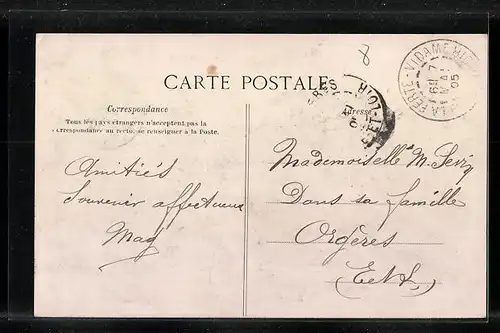 8
CARTE POSTALE
Correspondance
Tous les pays étrangers n'acceptent pas la
correspondance au recto, se renseigner à la Poste.
Adresse
LA FERTÉ-VIDAME
16
05
ET-LOIR
Amitiés
Souvenir affectueux
Mag
Mademoiselle M.
Dans sa famille
Orgères
(E et L)